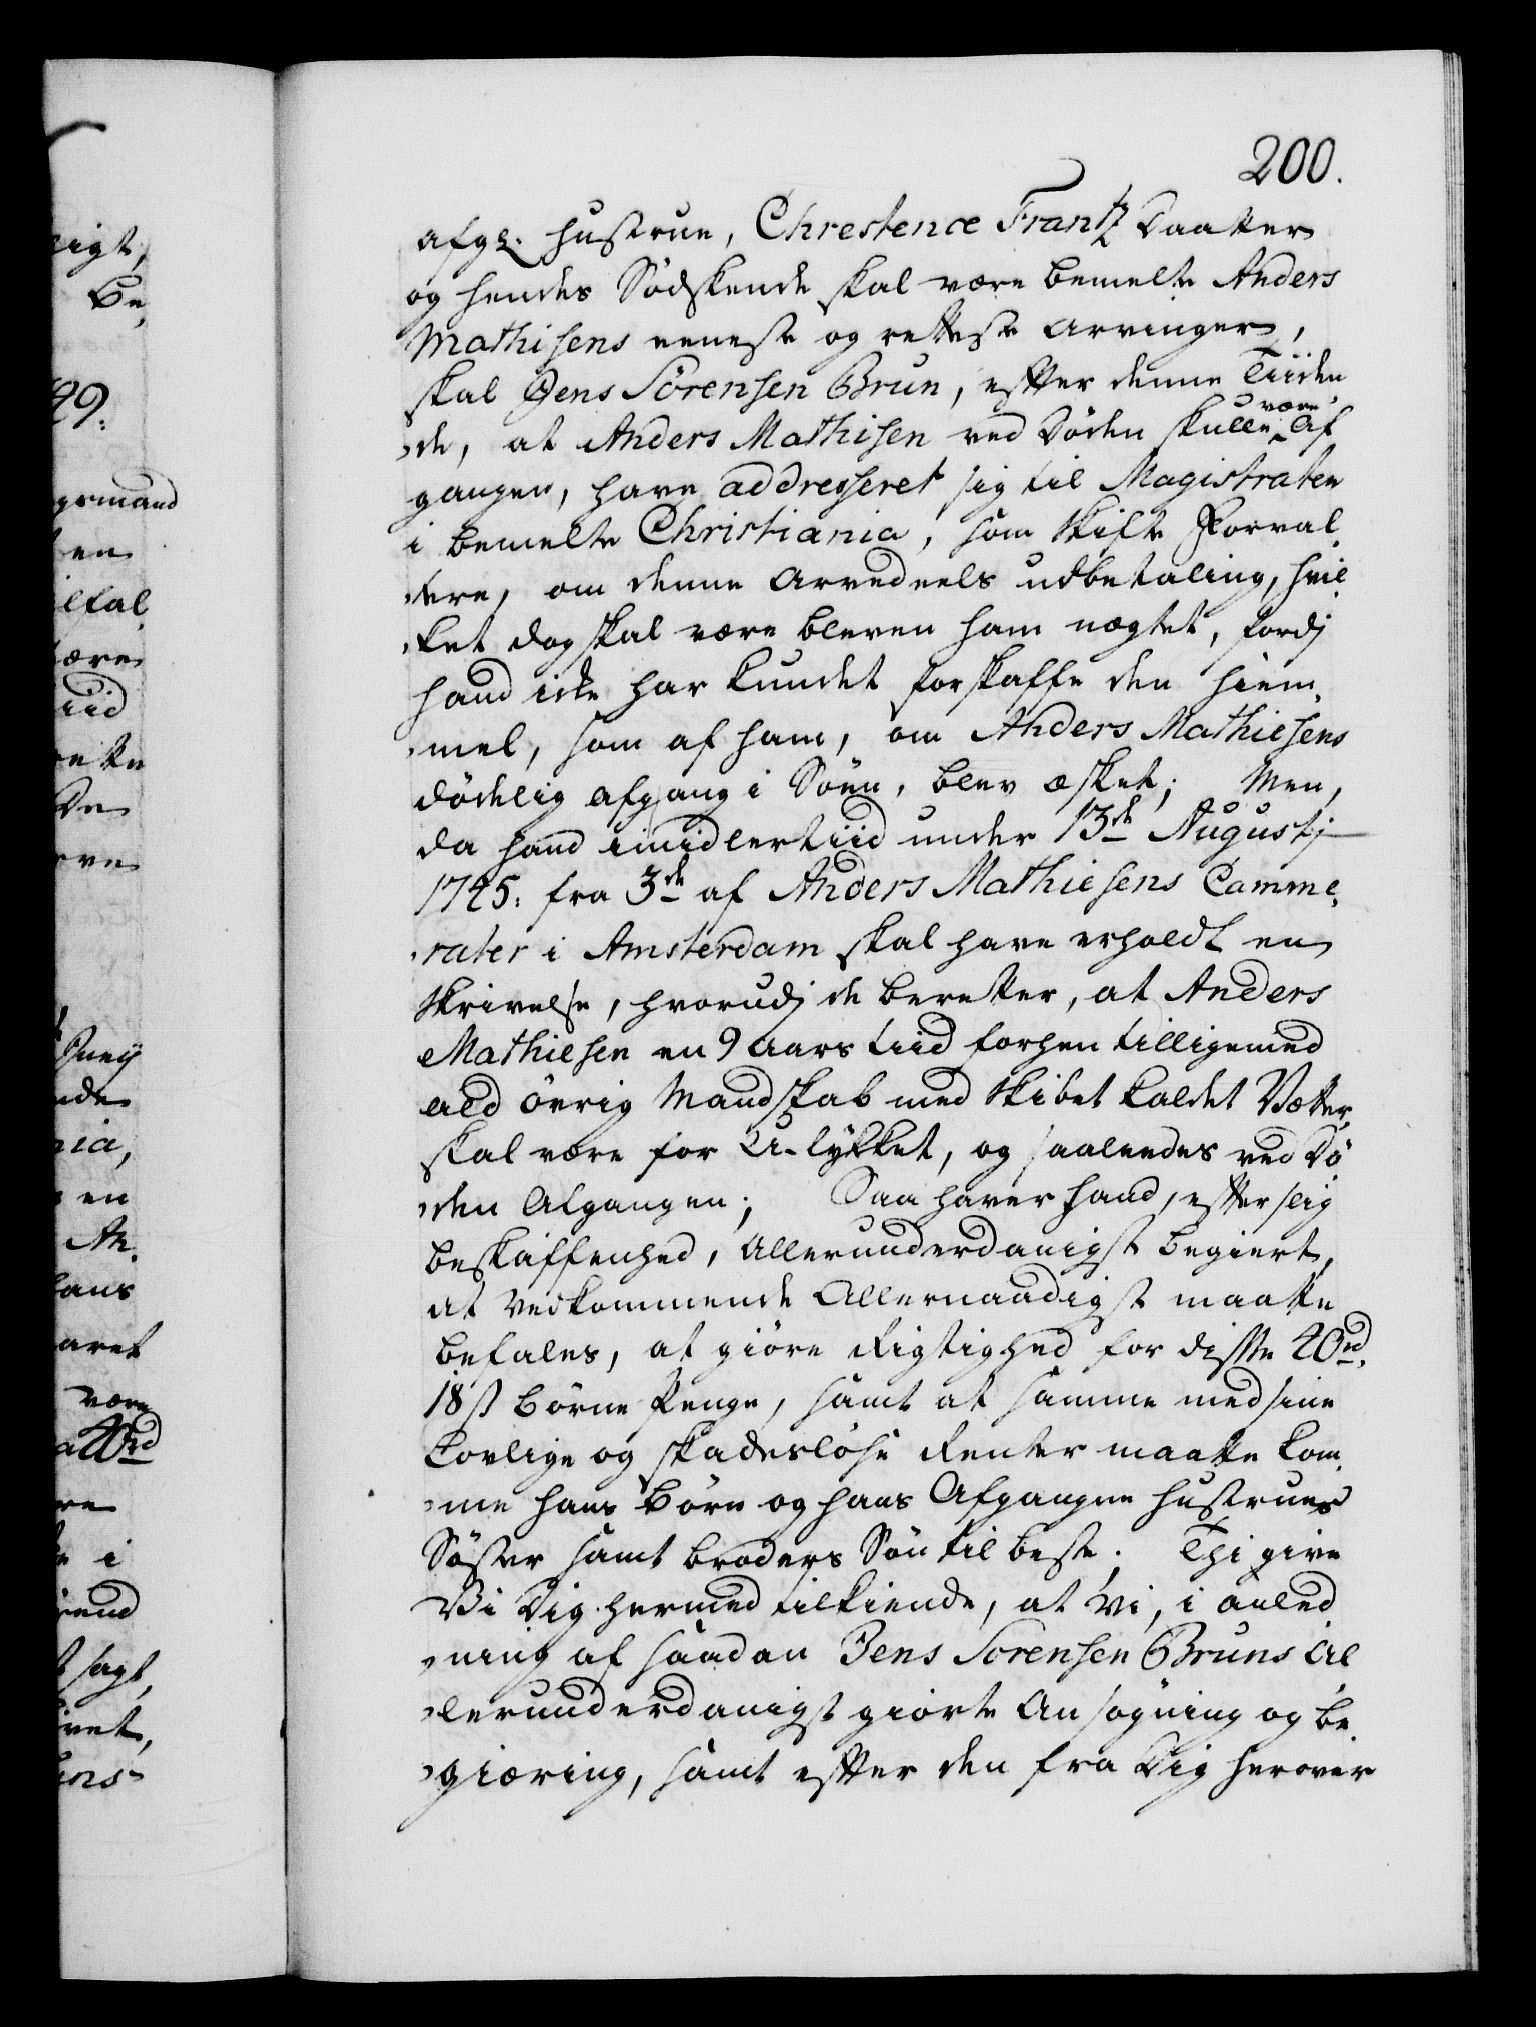 200.
afgl. Hustrue, Chrestence Frantz Daatter
og hendes Södskende skal være bemelte Anders
Mathisens eeneste og rætteste Arvinger,
skal Jens Sörensen Brun, efter denne Tiiden
de, at Anders Mathisen ved Döden skulle være Af
gangen, have addresseret sig til Magistraten
i bemelte Christiania, som Skifte Forval
tere, om denne Arvedeels udbetaling, hvil
ket dog skal være bleven ham nægtet, fordj
hand icke har kundet forskaffe den hiem
mel, som af ham, om Anders Mathiesens
dödelig afgang i Söen, blev æsket; Men,
da hand imidlertiid under 13de Augustj
1745. fra 3de af Anders Mathiesens Camme
rater i Amsterdam skal have erholdt en
Skrivelse, hvorudj de beretter, at Anders
Mathiesen en 9 Aars tiid forhen tilligemed
ald övrig Mandskab med Skibet kaldet Vætter,
skal være for U-lykket, og saaledes ved Dö
den Afgangen; Saa haver hand, efter slig
beskaffenhed, Allerunderdanigst begiert,
at vedkommende Allernaadigst maatte
befales, at giöre Rigtighed for disse 40 rd.
18 ß Börne Penge, samt at samme med sine
Lovlige og skadeslöse Renter maatte kom
me hans Börn og hans Afgangne Hustrues
Söster samt broders Sön til beste. Thi give
Vi Dig hermed tilkiende, at Vi, i anled
ning af saadan Jens Sorensen Bruns Al
lerunderdanigst giorte Ansögning og be
giæring, samt efter den fra Dig herover